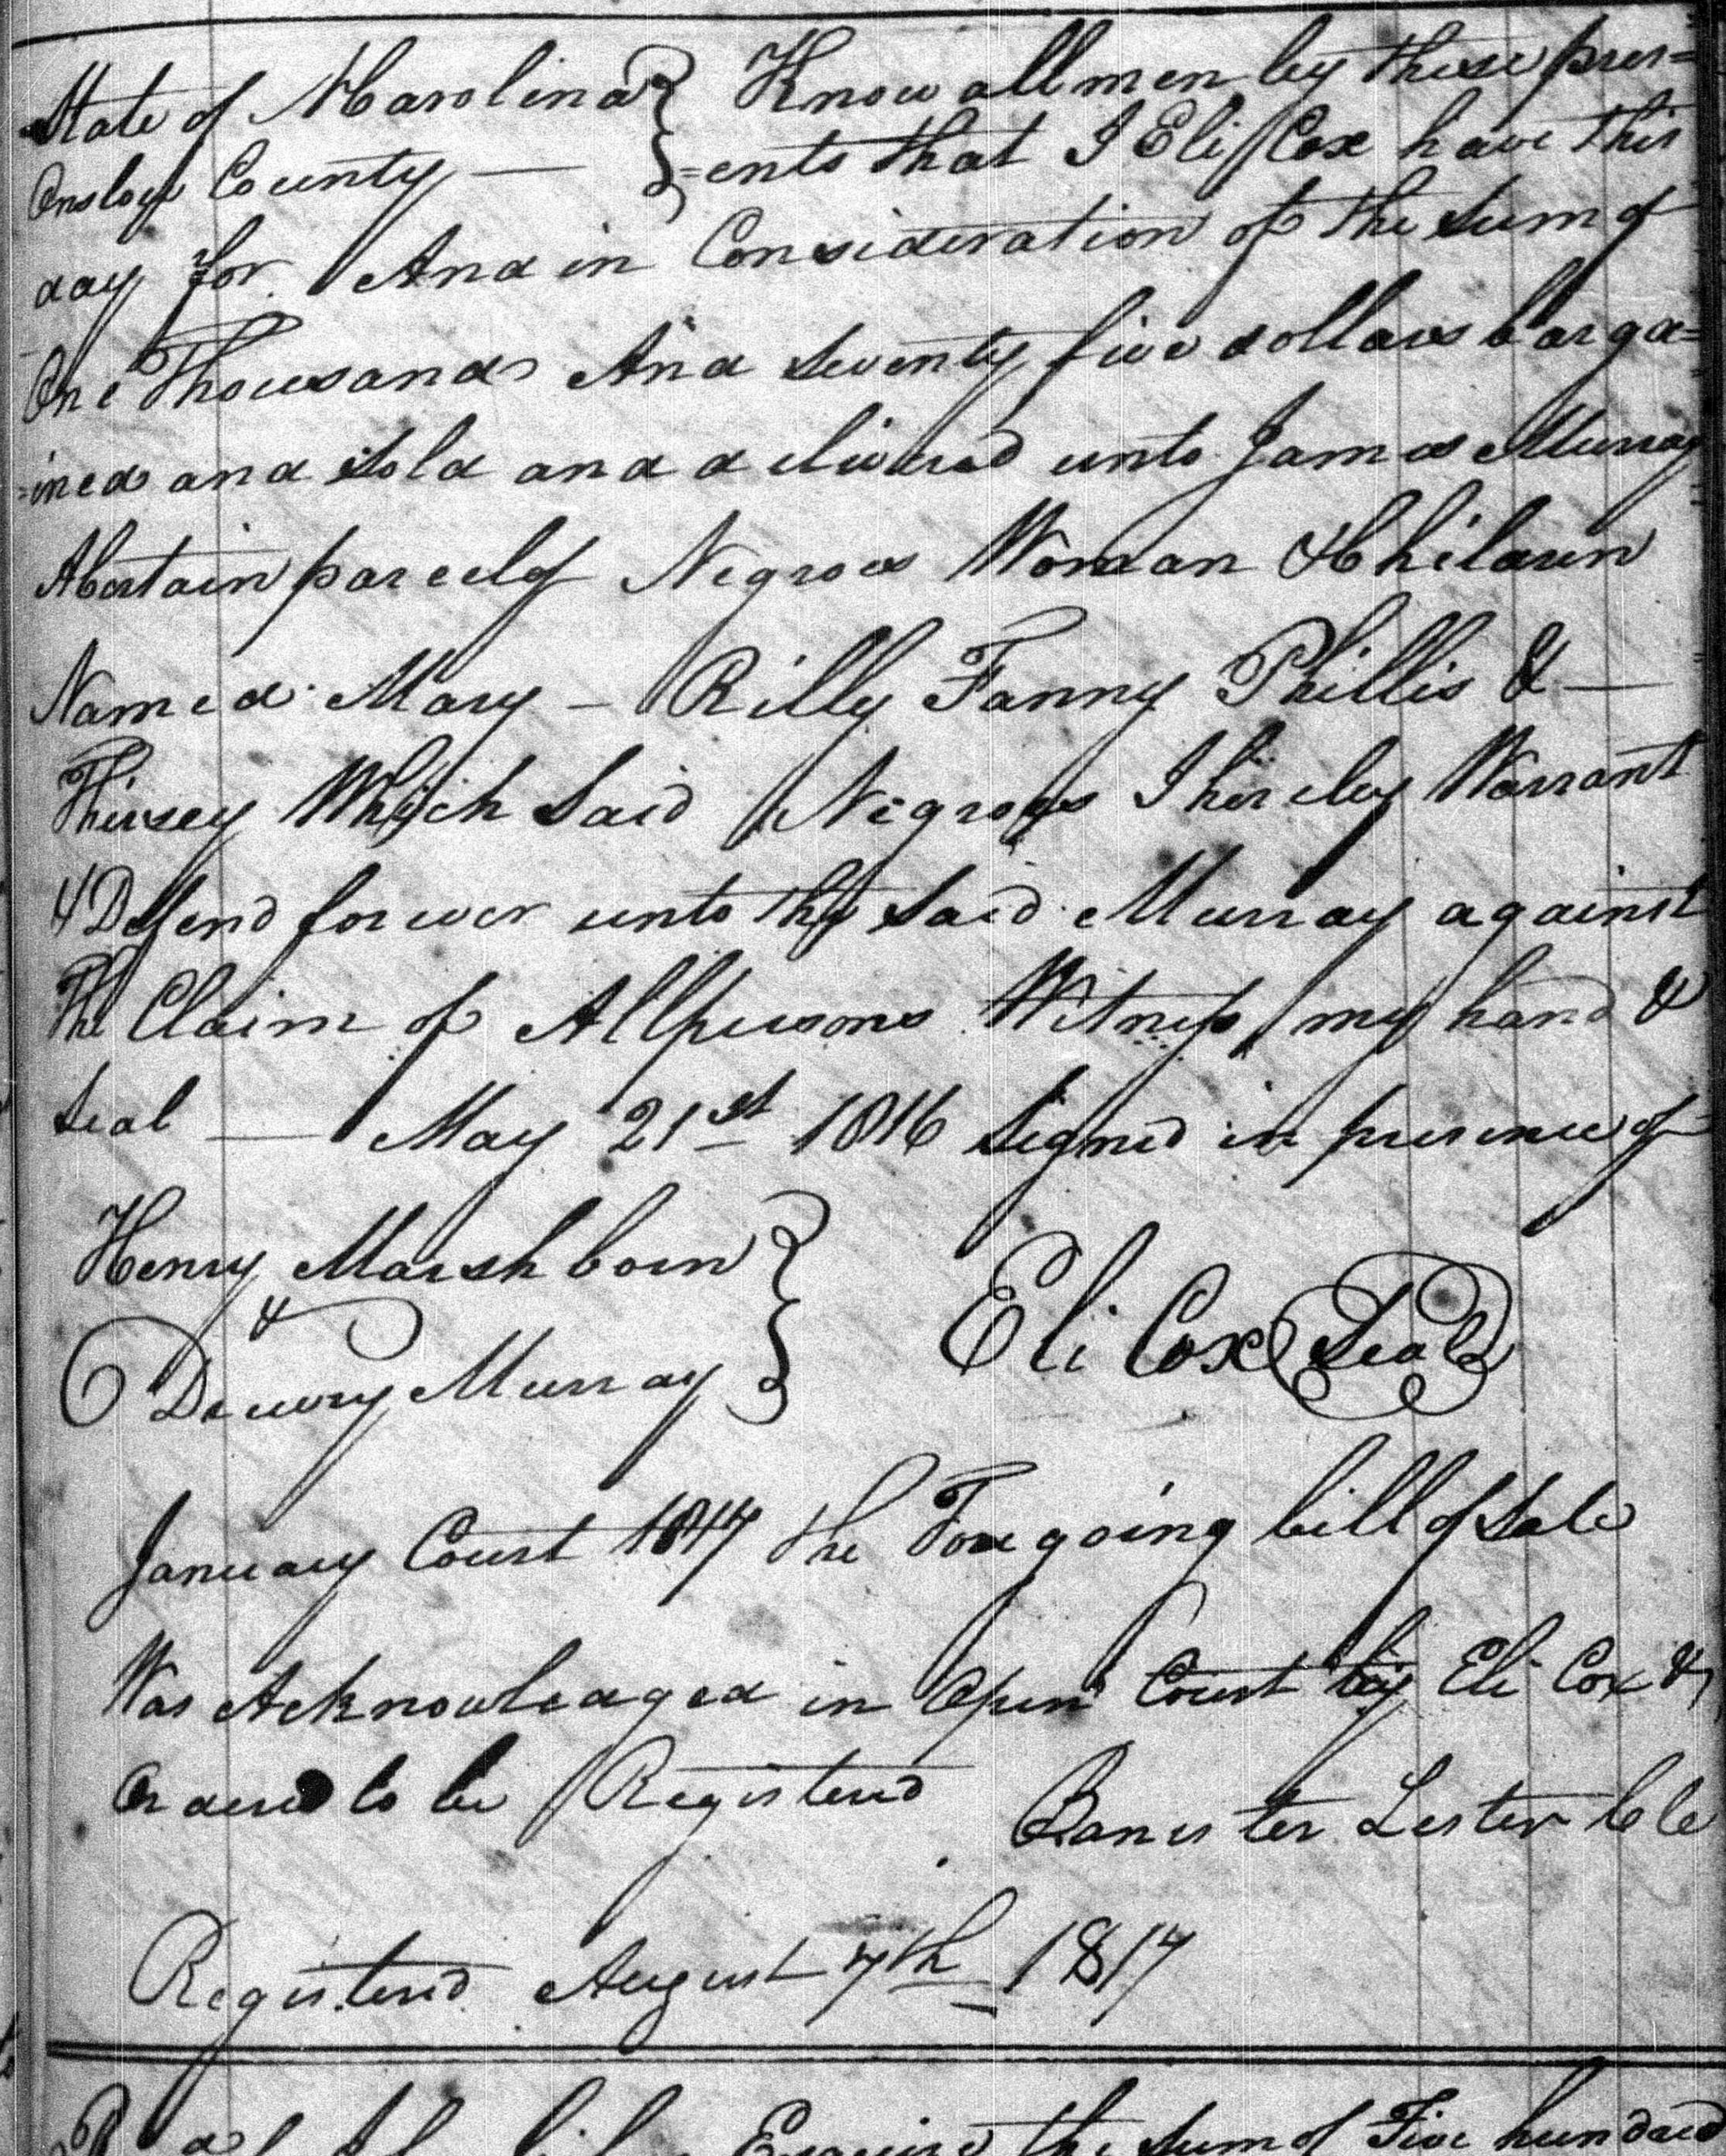 State of N Carolina } Know all men by these pres=
Onslow County — } =ents that I Eli Cox have this
day for And in Consideration of the Sum of
One Thousand And Seventy five dollars barga=
=ined and Sold and delivered unto James Murray
A Certain parcel of Negroes Woman & Children
Named Mary – Rilly Fanny Phillis & —
Thirsey Which Said Negroes I hereby Warrant
& Defend forever unto the Said Murray against
The Claim of All persons Witness my hand &
Seal — May 21st 1816 Signed in presence of
Henry Marshborn }
&
Drewry Murray } Eli Cox Seal
January Court 1817 the Foregoing bill of Sale
Was Acknowledged in Open Court by Eli Cox &
Ordered to be Registered
Banister Lester Cle
Registered August 7th 1817
Esquire the Sum of Five hundred